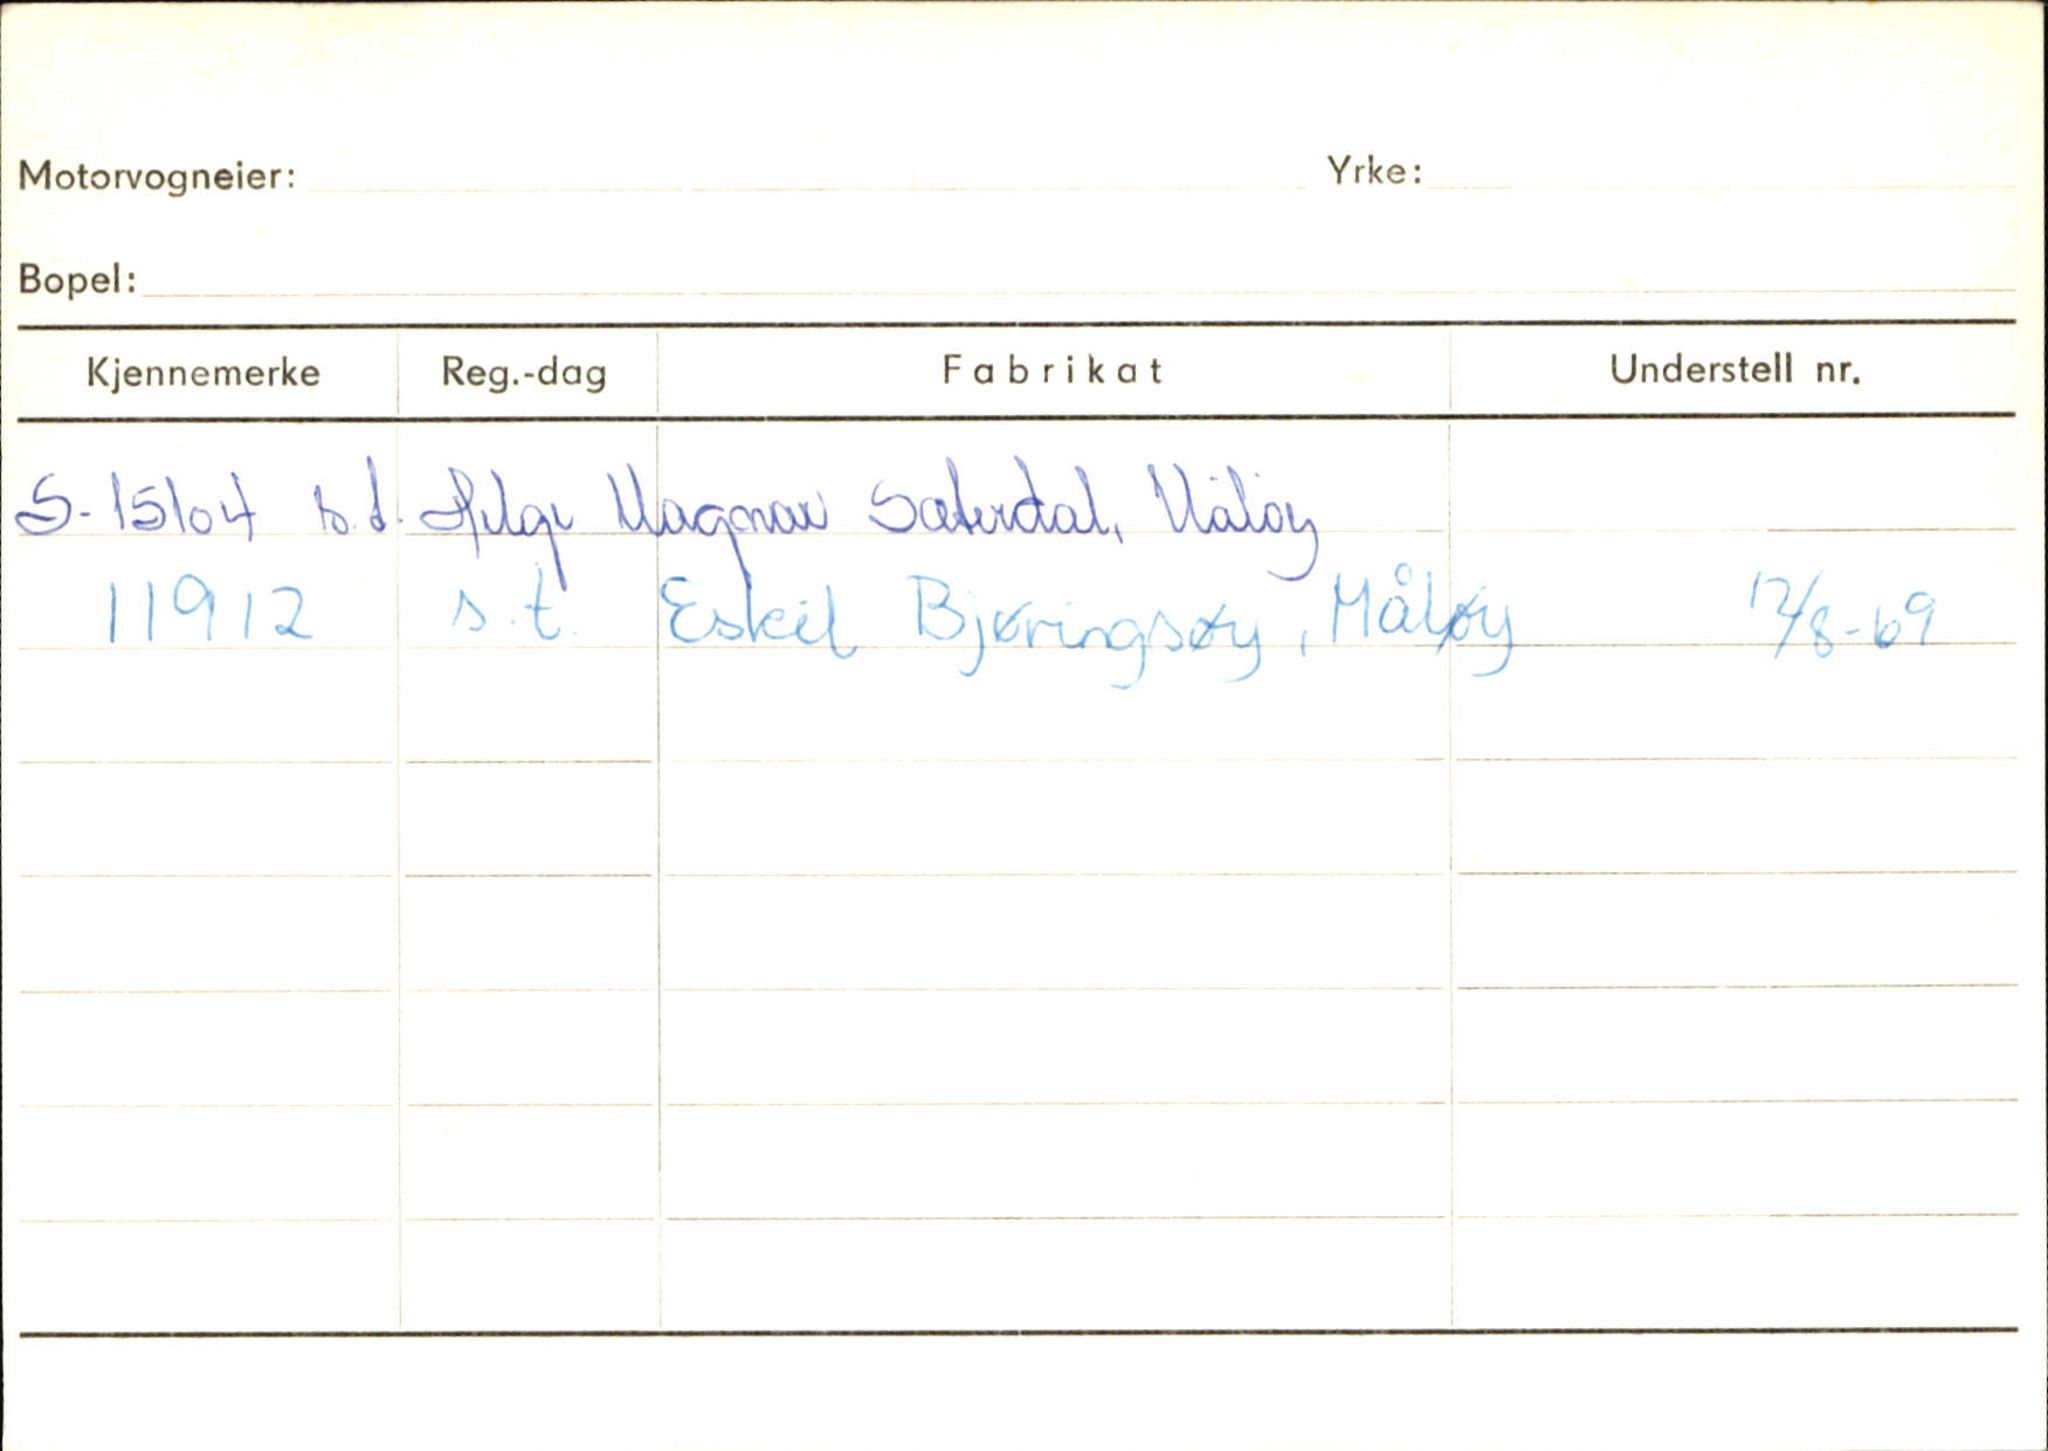 Motorvogneier: Yrke:
Bopel:
Kjennemerke Reg.-dag Fabrikat Understell nr.
S-15104 s.t. Helge Magnar Sæterdal, Måløy
11912 s.t. Eskil Bjøringsøy, Måløy 12/8-69